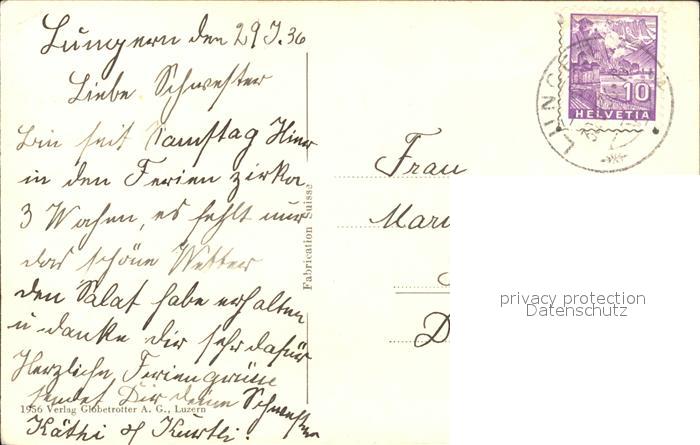 Lungern den 29 7.36
Liebe Schwester
Bin seit Samstag Hier
in den Ferien zirka
3 Wochen, es fehlt nur
das schöne Wetter
den Salat habe erhalten
u danke dir sehr dafür
Herzliche Feriengrüsse
sendet Dir deine Schwester
1956 Verlag Globetrotter A. G., Luzern
Käthi & Kurtli.
Fabrication Suisse
10
HELVETIA
LUNGERN
Frau
privacy protection
Datenschutz